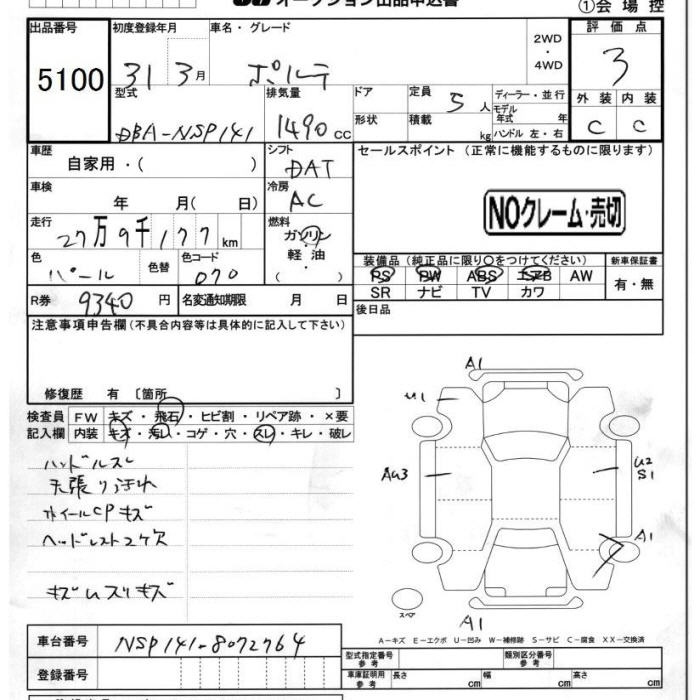 オークション出品申込書
①会場控
出品番号
5100
初度登録年月
31 3月
車名・グレード
ポルテ
2WD
・
4WD
評価点
3
外装 内装
C C
型式
DBA-NSP141
排気量
1490 cc
ドア
形状
定員 5 人
積載 kg
ディーラー・並行
モデル
年式 年
ハンドル 左・右
車歴
自家用・( )
シフト
DAT
セールスポイント (正常に機能するものに限ります)
車検
年 月( 日)
冷房
AC
NOクレーム・売切
走行
27万9千177km
燃料
ガソリン
軽油
・
( )
色
パール
色替
色コード
070
装備品(純正品に限り○をつけてください)
PS PW ABS エアB AW
SR ナビ TV カワ
新車保証書
有・無
R券 9340 円
名変通知期限 月 日
後日品
注意事項申告欄(不具合内容等は具体的に記入して下さい)
修復歴 有 〔箇所 〕
検査員
記入欄
FW キズ・飛石・ヒビ割・リペア跡・×要
内装 キズ・汚れ・コゲ・穴・スレ・キレ・破レ
ハンドルスレ
天張りよごれ
ホイールCPキズ
ヘッドレスト2ケ欠
キズムスリキズ
A1
U1
AU3
U2
S1
A1
A1
スペア
A-キズ E-エクボ U-凹み W-補修跡 S-サビ C-腐食 XX-交換済
車台番号 NSP141-8072764
登録番号
型式指定番号
参考
類別区分番号
参考
車庫証明用
参考
長さ cm 幅 cm 高さ cm